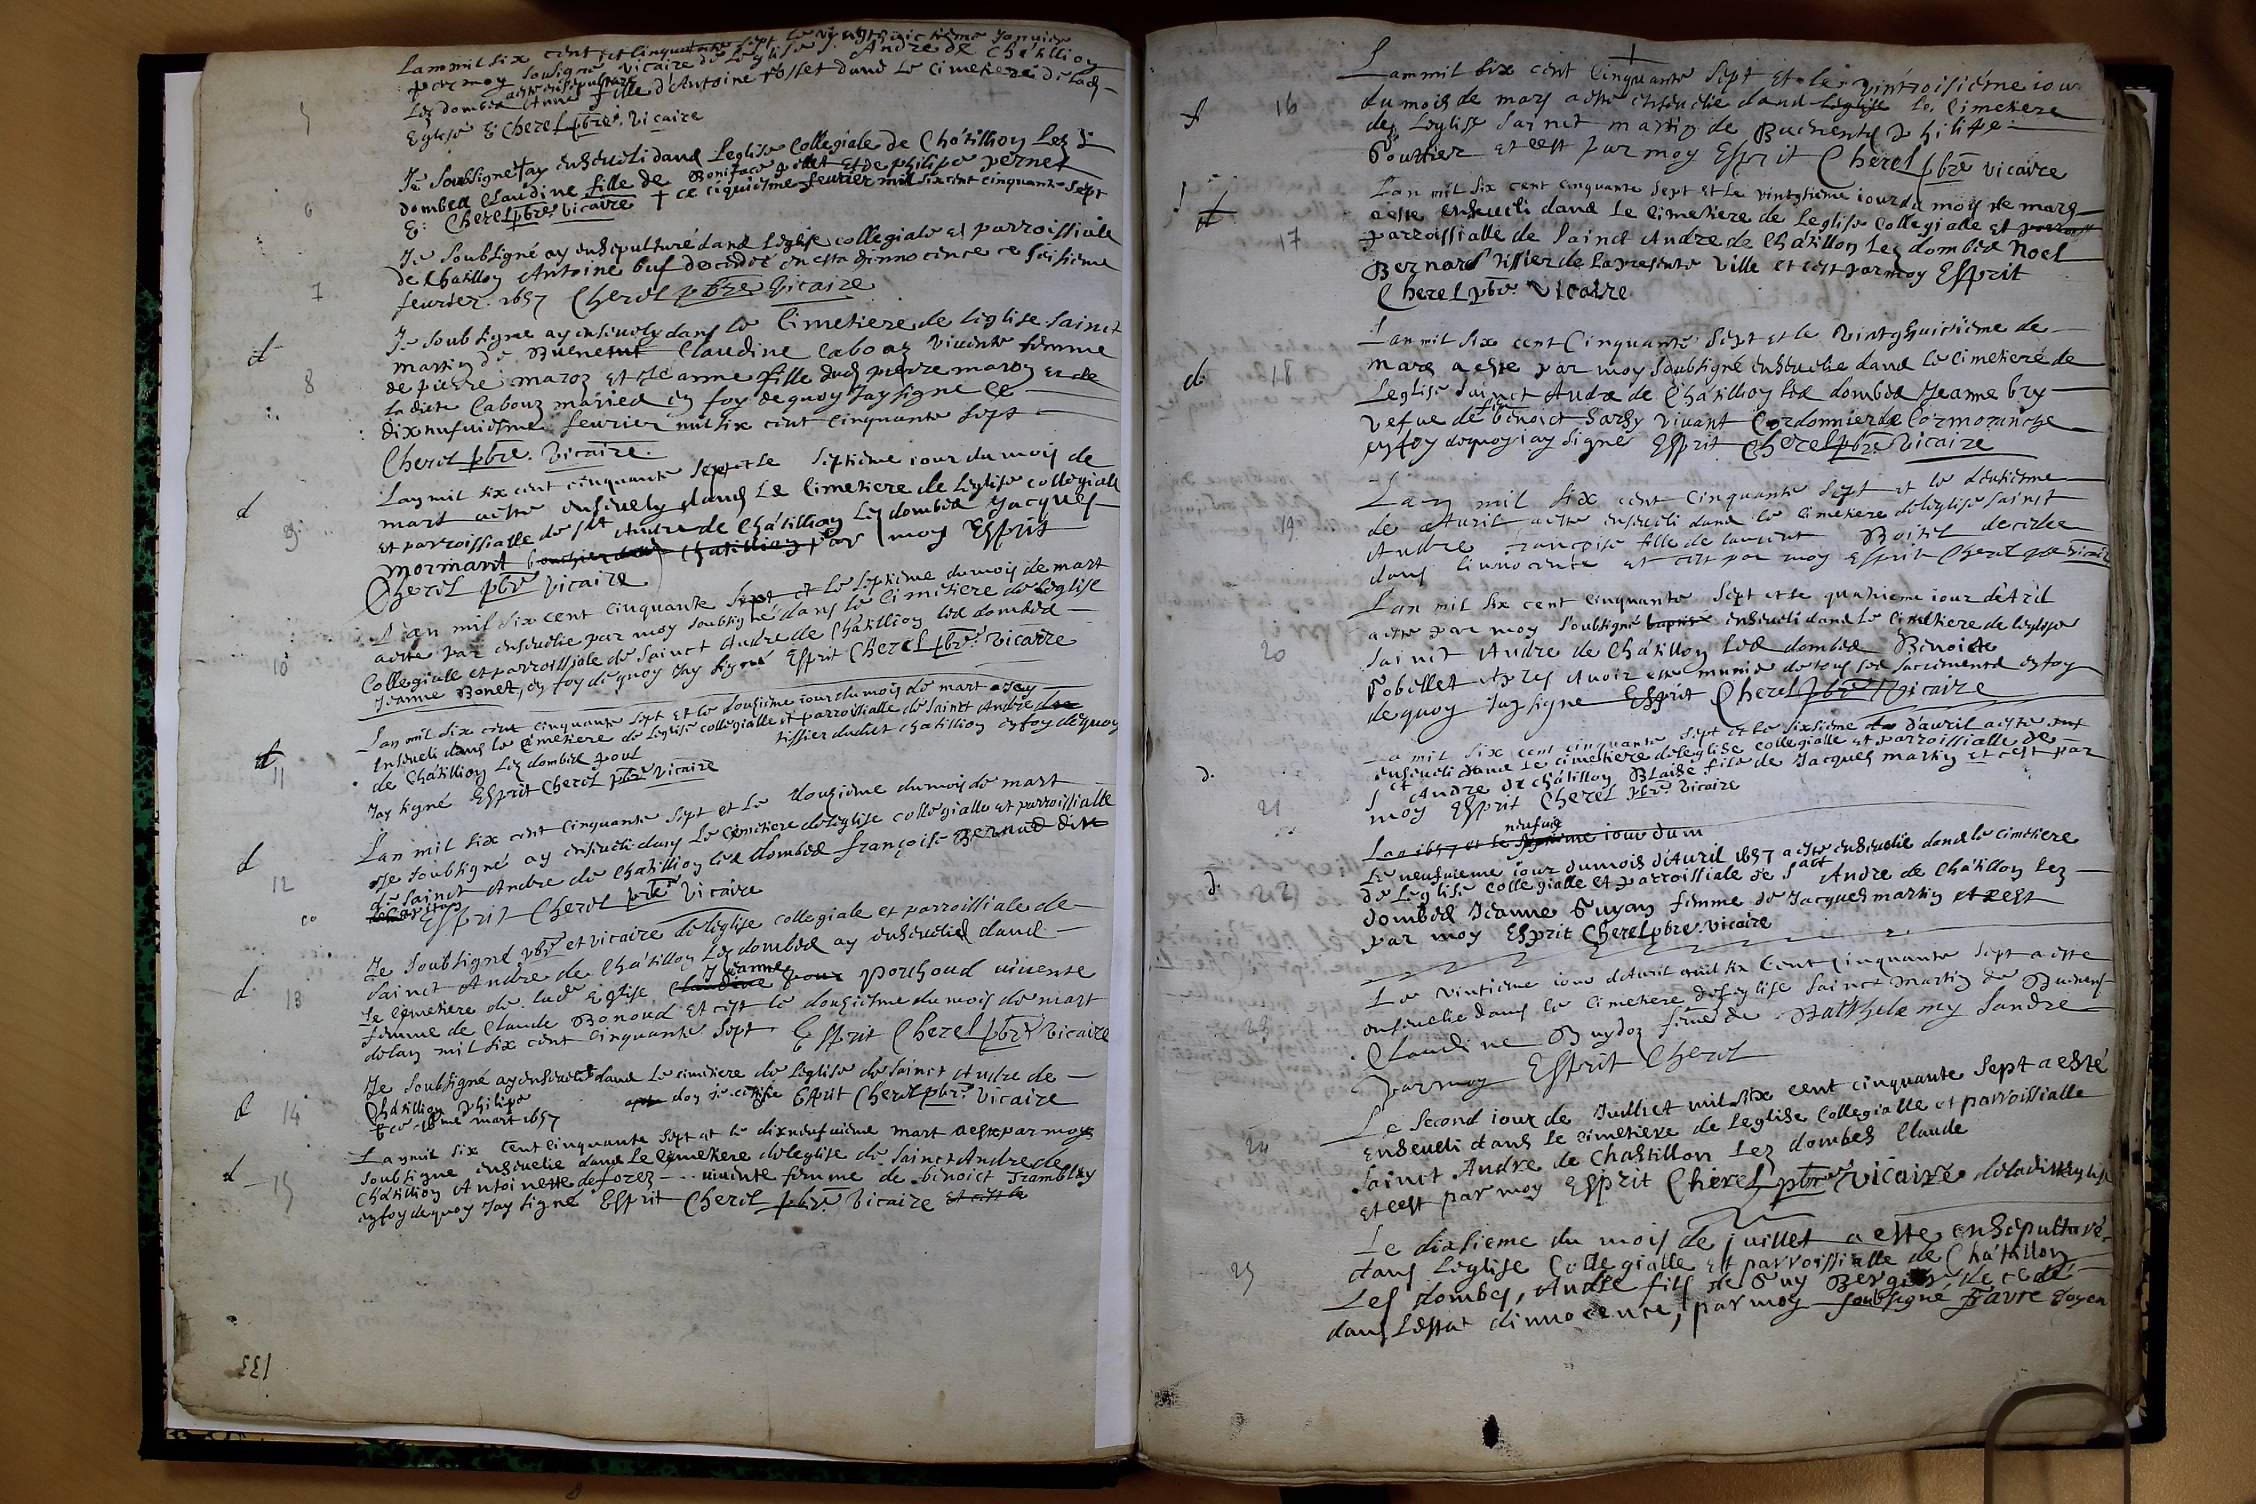 Lan mil six cent et cinquante sept le vingthuictiéme Janvier
par moy soubsigné vicaire de l'eglise S. Andre de Châtillion
Lez dombes aeste ensepulturé Anne fille d'Antoine fosset dans le cimetiere de lad.
Eglise E Cherel pbre. Vicaire
5
Je soubsigné ay enseveli dans Leglise Collegiale de Châtillion Lez
dombes Claudine fille de Boniface et de philipe pernet
E: Cherel pbre. Vicaire + ce ciquiesme fevrier mil six cent cinquante sept
6
Je soubsigné ay ensepulturé dans Leglise collegiale et parroissiale
de Chatillon Antoine buf decedée en esta dinnocence ce seisieme
fevrier. 1657 Cherel pbre Vicaire
7
Je soubsigne ay ensevely dans le Cimetiere de leglise sainct
martin de Buenent Claudine Cabouz vivente femme
de pierre maroz et Jeanne fille dud pierre maroz et de
ladicte Cabouz mariea en foy dequoy Jay signe ce
dixneufviesme fevrier mil six cent cinquante sept
Cherel pbre. Vicaire.
d
8
Lan mil six cent cinquante sept et le septieme iour du mois de
mars aeste ensevely dans Le Cimetiere de Leglise collegiale
et parroissialle de sct Andre de Châtillion Lez dombes Jacques
Mormant Chastillion par moy Esprit
Cherel pbre Vicaire
d
9
L'an mil six cent cinquante sept et le septieme du mois de mart
aeste par ensevelie par moy soubsigné dans le Cimetiere de leglise
Collegialle et parroissiale de Sainct Andre de Châtillion lez dombes
Jeanne Bonet, en foy de quoy Jay signé Esprit Cherel pbre. Vicaire
10
Lan mil six cent cinquante sept et le dousieme iour du mois de mart
Enseveli dans le Cimetiere de Leglise collegialle et parroissialle de Sainct Andre
de Châtillion Lez dombes pout tissier dudict chatillion en foy de quoy
Jay signé Esprit Cherel pbre Vicaire
d
11
Lan mil six cent cinquante sept et le dousieme du mois de mart
Je soubsigné ay enseveli dans Le Cimetiere de leglise collegialle et parroissialle
de Sainct Andre de Châtillion lez dombes françoise Bernud
Esprit Cherel pbre Vicaire
d
12
Je soubsigné pbre et vicaire de leglise collegiale et parroissiale de
Sainct Andre de Châtillon Lez dombes ay ensevelie dans
Le Cemetiere de lad Eglise Claudine Jeanne pouchoud vivente
femme de Claude Bonoud et cest le dousiesme du mois de mart
de lan mil six cent cinquante sept Esprit Cherel pbre Vicaire
d
13
Je soubsigné ay enseveli dans Le cimetiere de leglise de Sainct Andre de
Châtillion Philipe don je certifie Esprit Cherel pbre. Vicaire
ce 18me mart 1657
d
14
Lan mil six cent cinquante sept et le dixneufvieme mart aeste par moy
soubsigne ensevelie dans Le Cemetiere de leglise de Sainct Andre de
Châtillion Antoinette de forez vivente femme de benoict Tramblay
en foy de quoy Jay signé Esprit Cherel pbre. Vicaire et cest le
d
15
133
Lan mil six cent cinquante sept et le vintroisiéme iour
du mois de mars aeste ensevelie dans leglise le Cimetiere
de Leglise sainct martin de Buenent Philipe
Gouttier et cest par moy Esprit Cherel pbre vicaire
16
Lan mil six cent cinquante sept et le iour du mois de mars
aeste enseveli dans Le Cimetiere de Leglise Collegialle et
parroissialle de Sainct Andre de Châtillon Lez dombes Noel
Bernard tissier de la presente Ville et cest par moy Esprit
Cherel pbre. Vicaire
d
17
Lan mil six cent Cinquante sept et le vintghuictiéme de
mars aeste par moy soubsigné ensevelie dans le Cimetieré de
Leglise Sainct Andre de Châtillion lez dombes Jeanne bry
vefve de feu benoict Vivant Cordonnier de Cormoranche
en foy de quoy iay signé Esprit Cherel pbre. Vicaire
d.
18
Lan mil six cent cinquante sept et le deusieme
de Avril aeste enseveli dans le Cimetiere de leglise Sainct
Andre françoise fille de laurent Boitel decedee
dans linnocence et cest par moy Esprit Cherel pbre Vicaire
19.
Lan mil six cent cinquante sept et le quatrieme iour dAvril
aeste par moy soubsigné baptisé enseveli dans Le Cimetiere de leglise
Sainct Andre de Châtillon Lez dombes Benoicte
Gobellet Apres Avoir este munie de tous ses sacrements en foy
de quoy Jay signe Esprit Cherel pbre Vicaire
20
Lan mil six cent cinquante sept et le sixsieme d'avril aeste
enseveli dans Le cimetiere de leglise collegialle et parroissialle de
Sct Andre de châtillon Blaise fils de Jacques martin et cest par
moy Esprit Cherel pbre vicaire
d.
21
Lan 1657 et le neufvie iour du m
Le neufvieme iour du mois d'Avril 1657 aeste ensevelie dans le cimetiere
de Leglise collegialle et parroissiale de Sainct Andre de Châtillon Lez
dombes Jeanne Guyan femme de Jacques martin et cest
par moy Esprit Cherel pbre. vicaire
d.
Le vintieme iour dAvril mil six Cent Cinquante sept aeste
ensevelie dans le Cimetiere de leglise Sainct martin de Buenent
Claudine Buydoz femme de Batthelemy Sandre
Par moy Esprit Cherel
23
Le second iour de Juilliet mil six cent cinquante sept aesté
Enseveli dans Le cimetiere de Leglise Collegialle et parroissialle
Sainct Andre de Chastillon Lez dombes Claude
et cest par moy Esprit Cherel pbre Vicaire de ladicte Eglise
24
Le dixsieme du mois de juillet a este ensepulturé
dans Leglise Collegialle et parroissialle de Châtillon
Les dombes, Andre fils de Guy Bergier decedé
dans Lestat dinnocence, par moy soubsigné Favre doyen
25